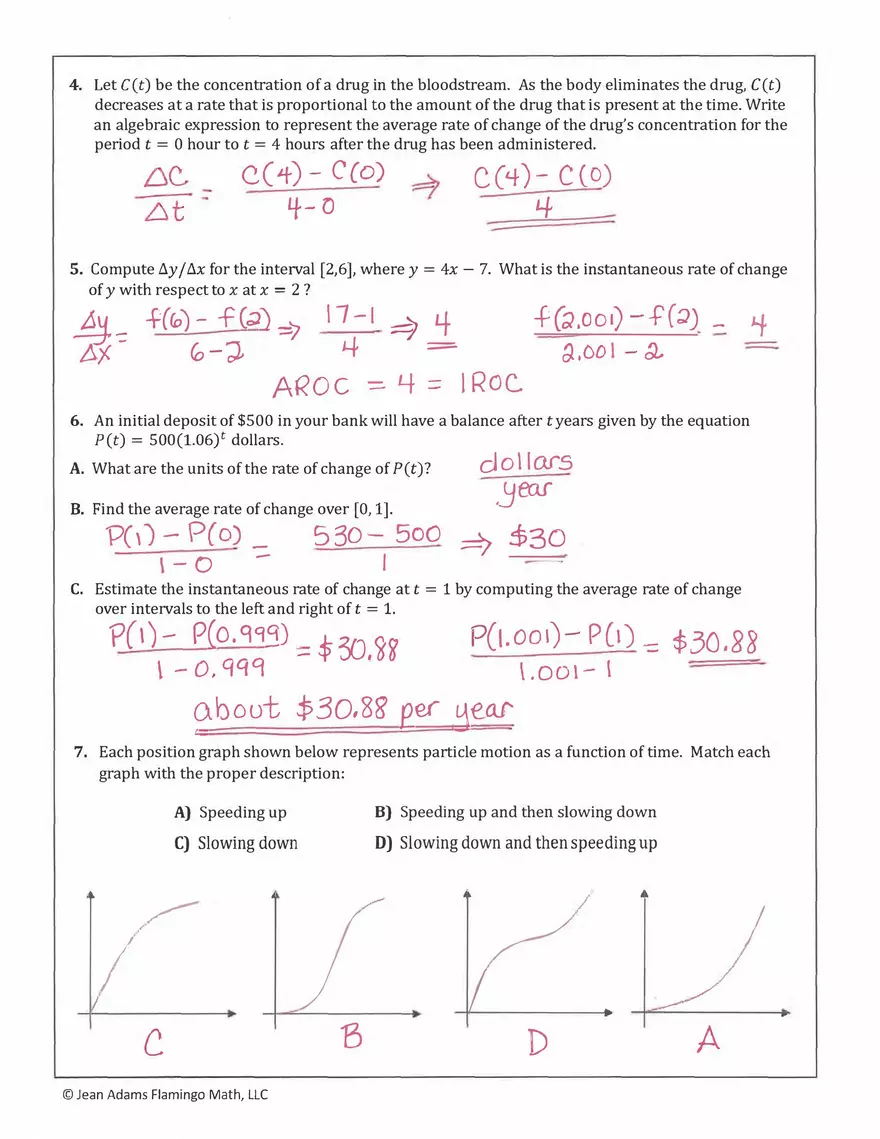 4. Let C(t) be the concentration of a drug in the bloodstream. As the body eliminates the drug, C(t)
decreases at a rate that is proportional to the amount of the drug that is present at the time. Write
an algebraic expression to represent the average rate of change of the drug's concentration for the
period t = 0 hour to t = 4 hours after the drug has been administered.
ΔC/Δt = (C(4) – C(0))/(4–0) ⇒ (C(4) – C(0))/4
5. Compute Δy/Δx for the interval [2,6], where y = 4x − 7. What is the instantaneous rate of change
of y with respect to x at x = 2 ?
Δy/Δx = (f(6) – f(2))/(6–2) ⇒ (17–1)/4 ⇒ 4 (f(2.001) – f(2))/(2.001 – 2) = 4
AROC = 4 = IROC
6. An initial deposit of $500 in your bank will have a balance after t years given by the equation
P(t) = 500(1.06)^t dollars.
A. What are the units of the rate of change of P(t)? dollars/year
B. Find the average rate of change over [0, 1].
(P(1) – P(0))/(1 – 0) = (530 – 500)/1 ⇒ $30
C. Estimate the instantaneous rate of change at t = 1 by computing the average rate of change
over intervals to the left and right of t = 1.
(P(1) – P(0.999))/(1 – 0.999) = $30.88 (P(1.001) – P(1))/(1.001 – 1) = $30.88
about $30.88 per year
7. Each position graph shown below represents particle motion as a function of time. Match each
graph with the proper description:
A) Speeding up B) Speeding up and then slowing down
C) Slowing down D) Slowing down and then speeding up
C B D A
© Jean Adams Flamingo Math, LLC